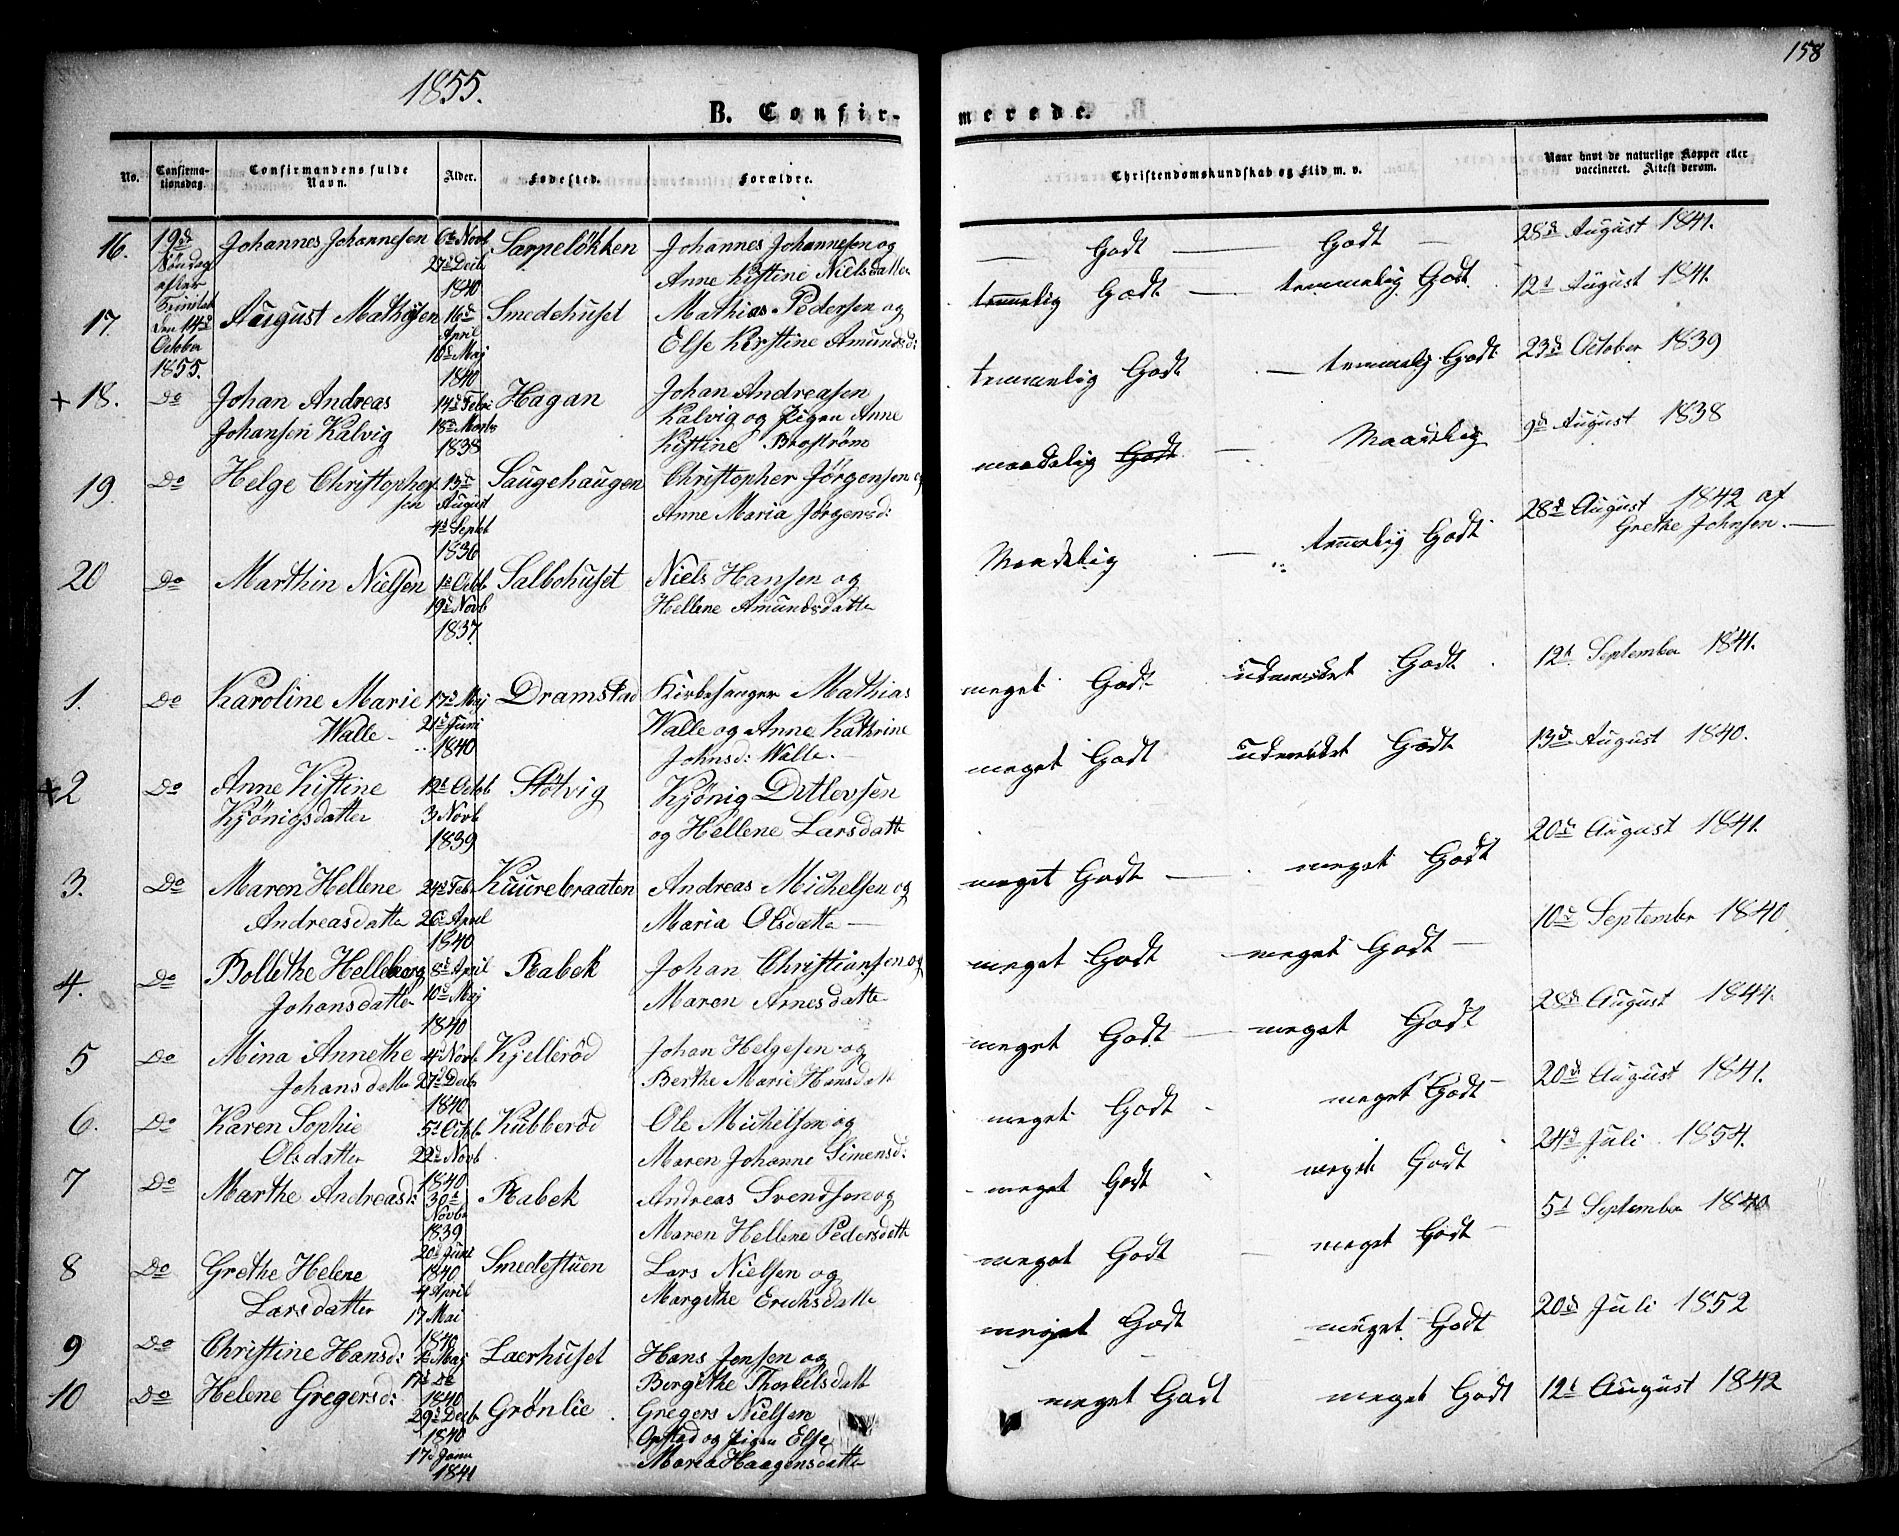 1855.
158
B. Confir-
merede.
No.
Confirma-
tionsdag.
Confirmandens fulde
Navn.
Alder.
Fødested.
Forældre.
Christendomskundskab og Flid m. v.
Naar havt de naturlige Kopper eller
vaccineret. Attest derom.
16. 19de Johannes Johannesen 6te Novb Sarpeløkken Johannes Johannesen og Godt — Godt — 28de August 1841.
Søndag 27de Decb Anne Kistine Nielsdatter
efter 1840
Trinitat
17. den 14de August Mathisen 16de Smedehuset Mathias Pedersen og temmelig Godt — temmelig Godt 12te August 1841.
October April Else Kirstine Amundsd:
1855. 16de Maj
1840
+ 18. Do Johan Andreas 14de Febr Hagan Johan Andreasen temmelig Godt — temmelig Godt 23de October 1839
Johansen Kalvig 18de Marts Kalvig og Pigen Anne
1838 Kistine Brostrøm
19. Do Helge Christopher 13de Saugehaugen Christopher Jørgensen og maadelig Godt — Maadelig 9de August 1838
sen August Anne Maria Jørgensd:
4de Septb
1836
20 Do Marthin Nielsen 1te Octb Salbohuset Niels Hansen og Maadelig — temmelig Godt 28de August 1842 af
19de Novb Hellene Amundsdatte Grethe Johnsen. —
1837.
1. Do Karoline Marie 17de Maj Dramstad Kirkesanger Mathias meget Godt udmærket Godt 12te September 1841.
Walle 21de Juni Walle og Anne Kathrine
1840 Johnsd: Walle. —
+2 Do Anne Kistine 19de Octb Støtvig Kjønig Ditlevsen meget Godt udmærket Godt 13de August 1840.
Kjønigsdatter 3 Novb og Hellene Larsdatte
1839
3. Do Maren Hellene 24de Feb Kuurebraaten Andreas Michelsen og meget Godt — meget Godt 20de August 1841.
Andreasdatte 26de April Maria Olsdatte —
1840
4. Do Bollethe Helleborg 8de April Rabek Johan Christiansen og meget Godt meget Godt — 10de September 1840
Johansdatter 10de Maj Maren Arnesdatte
1840
5 Do Mina Annethe 4de Novb Kjellerød Johan Helgesen og meget Godt — meget Godt 28de August 1844.
Johansdatte 27de Decb Berthe Marie Hansdatt
1840
6. Do Karen Sophie 5te Octb Kubberød Ole Michelsen og meget Godt meget Godt — 20de August 1841.
Olsdatter 22de Novb Maren Johanne Simensd:
1840
7 Do Marthe Andreasd: 30te Rabek Andreas Svendsen og meget Godt meget Godt 24de Juli 1854.
Novb Maren Hellene Pedersdatt
1839
20de Juni
8 Do Grethe Helene 1840 Smedestuen Lars Nielsen og meget Godt meget Godt — 5te September 1840
Larsdatter 4 April Margithe Erichsdatte
17 Mai
1840
9 Do Christine Hansd: 1te Maj Laerhuset Hans Jensen og meget Godt meget Godt 20de Juli 1852
17de Do Bergithe Thorkelsdatt
1840
10 Do Helene Gregersd: 29de Decb Grønlie Gregers Nielsen meget Godt meget Godt 12te August 1842
1840 Opstad og Pigen Else
17de Janu Maria Haagensdatte
1841